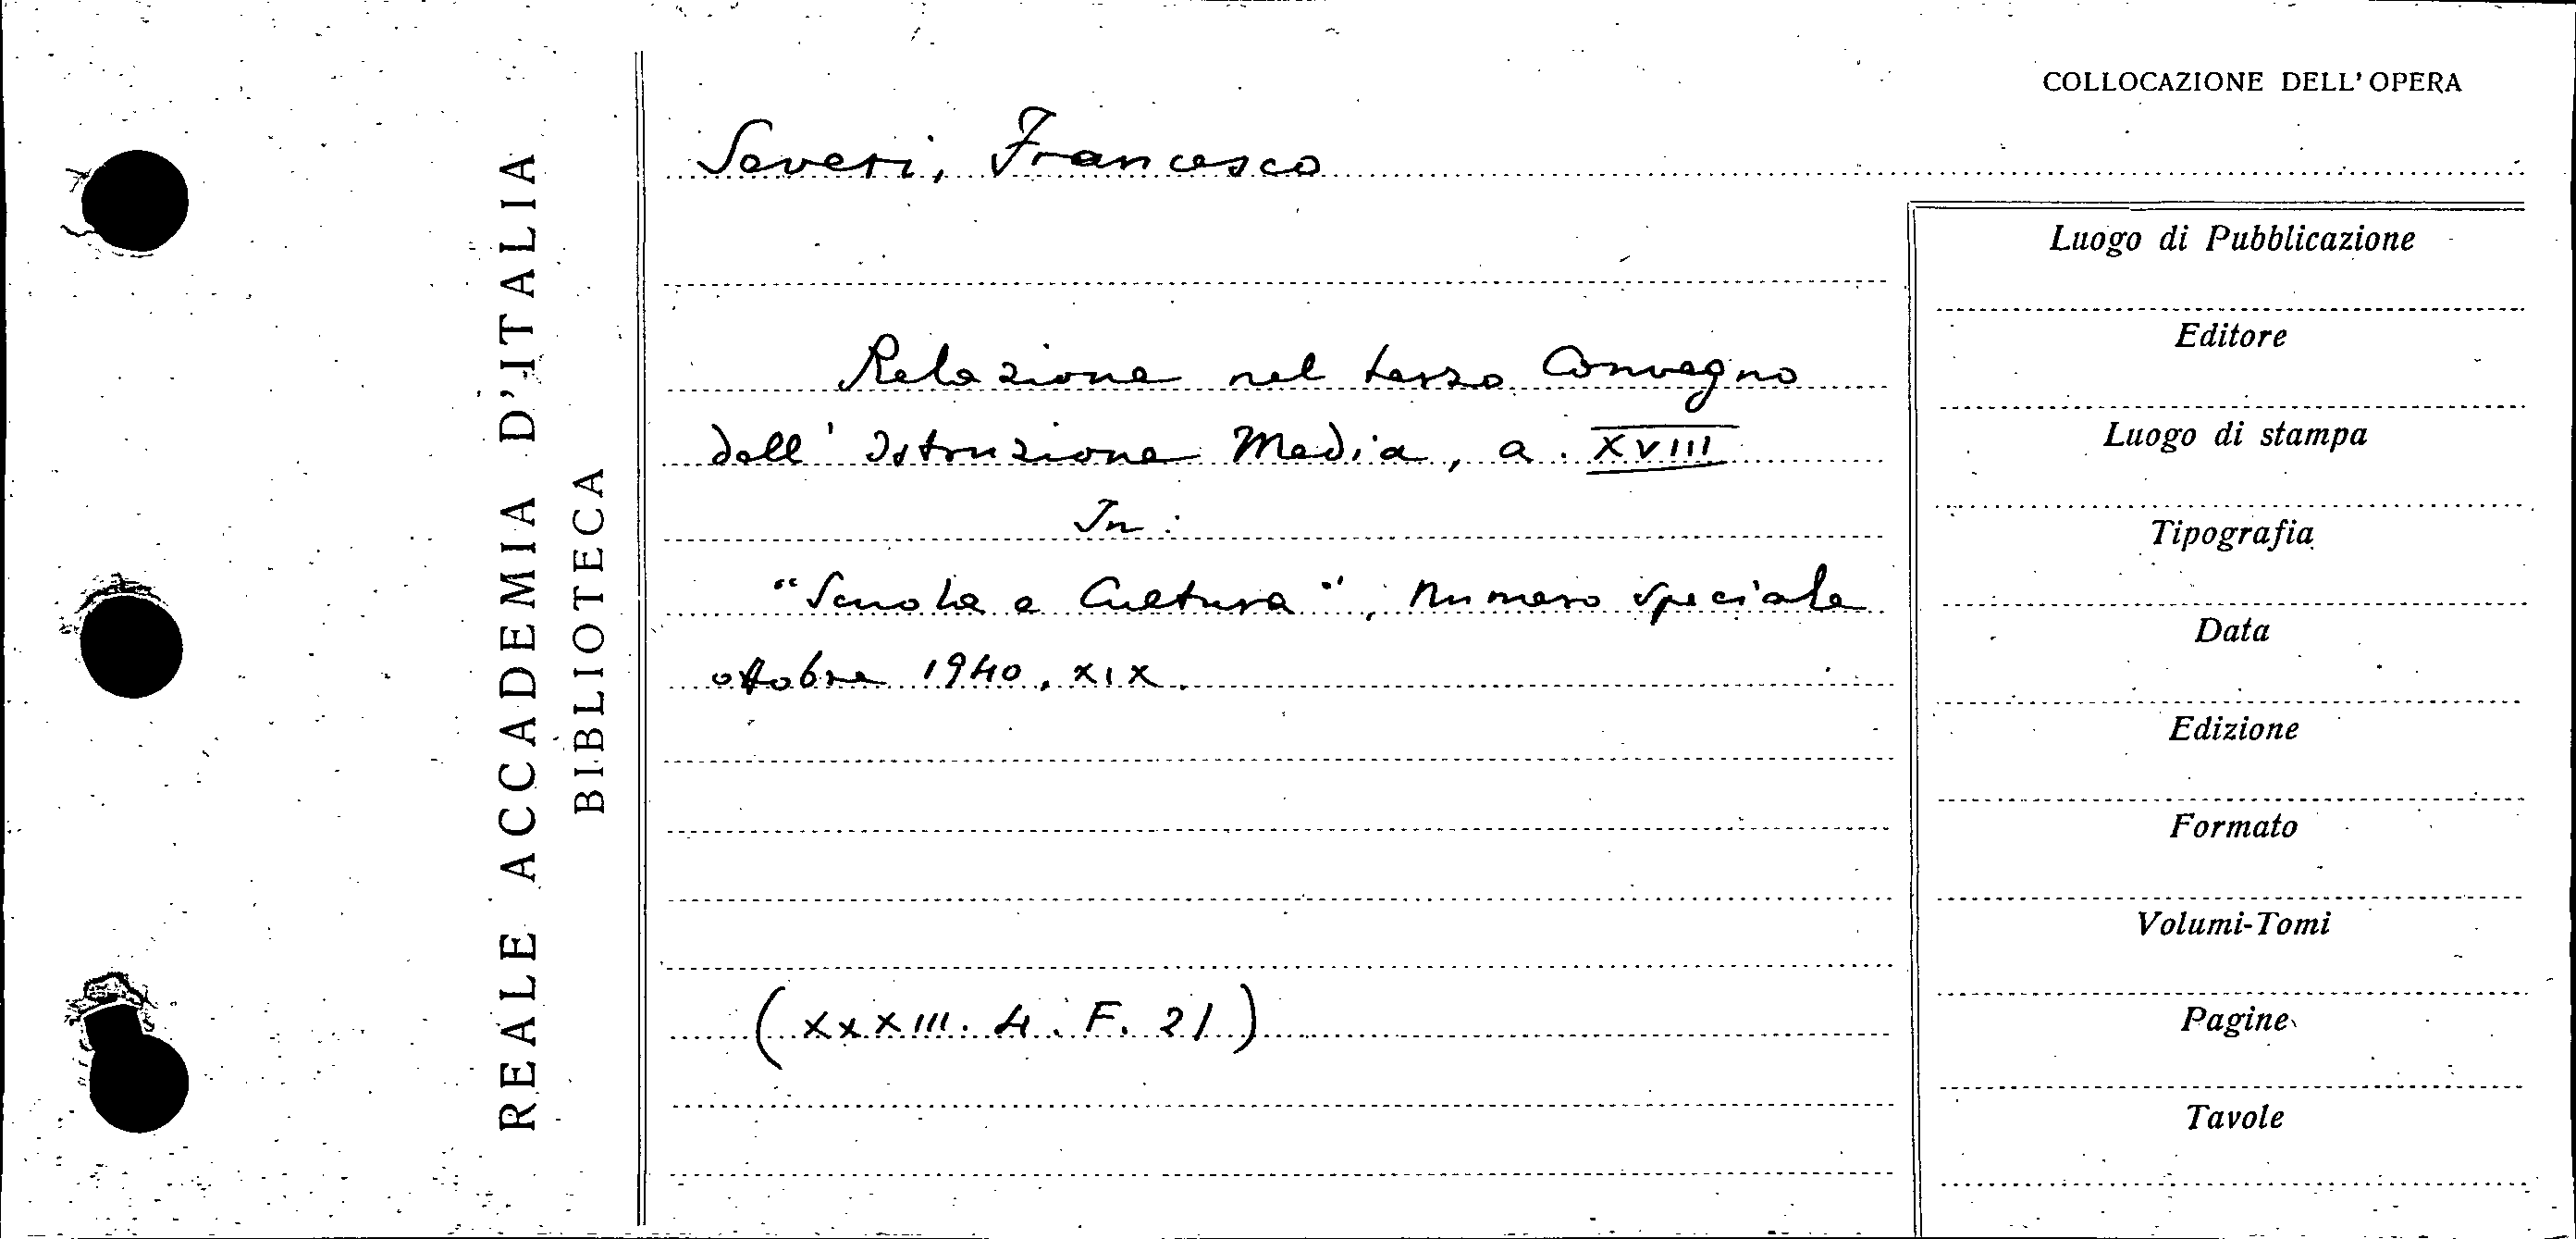 REALE ACCADEMIA D'ITALIA
BIBLIOTECA
COLLOCAZIONE DELL'OPERA
Severi, Francesco
Relazione nel terzo Convegno
dell' Istruzione Media, a. XVIII
In:
"Scuola e Cultura", numero speciale
ottobre 1940, XIX.
(XXXIII. 4. F. 21)
Luogo di Pubblicazione
Editore
Luogo di stampa
Tipografia
Data
Edizione
Formato
Volumi-Tomi
Pagine
Tavole